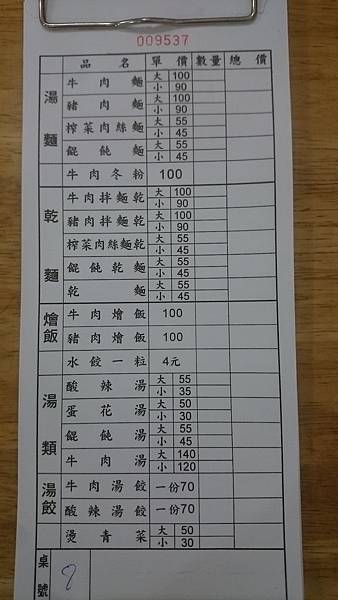 009537
品名 單價 數量 總價
湯麵
牛肉麵 大 100 小 90
豬肉麵 大 100 小 90
榨菜肉絲麵 大 55 小 45
餛飩麵 大 55 小 45
牛肉冬粉 100
乾麵
牛肉拌麵乾 大 100 小 90
豬肉拌麵乾 大 100 小 90
榨菜肉絲麵乾 大 55 小 45
餛飩乾麵 大 55 小 45
乾麵 大 55 小 45
燴飯
牛肉燴飯 100
豬肉燴飯 100
水餃一粒 4元
湯類
酸辣湯 大 55 小 35
蛋花湯 大 50 小 30
餛飩湯 大 55 小 45
牛肉湯 大 140 小 120
湯餃
牛肉湯餃 一份70
酸辣湯餃 一份70
燙青菜 大 50 小 30
桌號 7